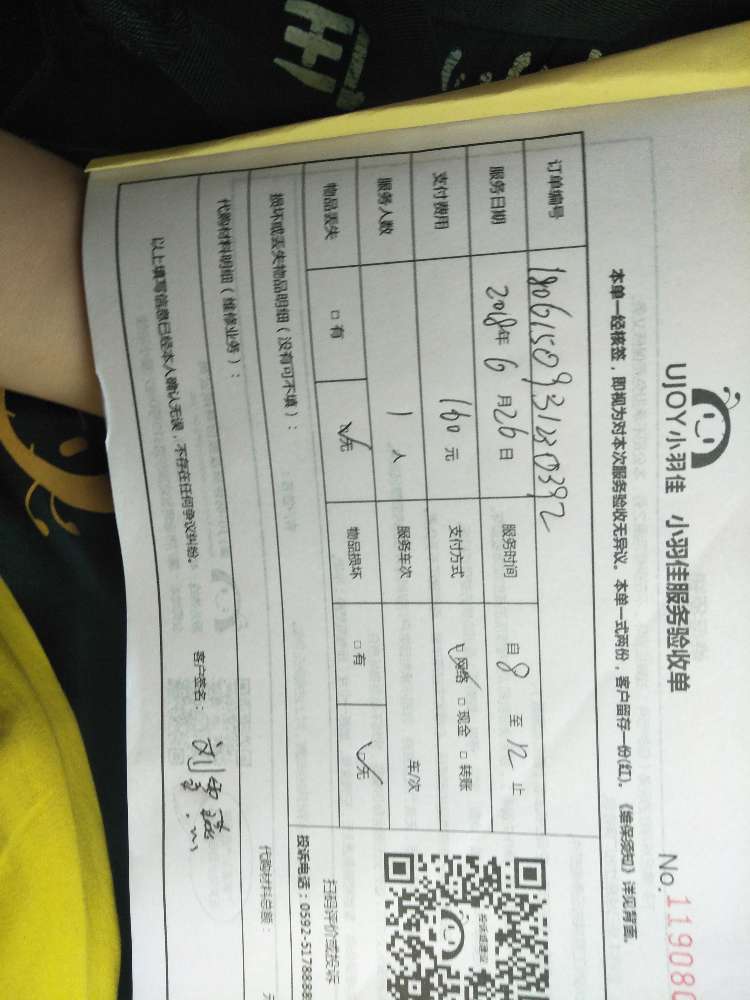 UJOY小羽佳 小羽佳服务验收单 No.119080
本单一经核签，即视为对本次服务验收无异议。本单一式两份，客户留存一份(红)。《维保须知》详见背面。
订单编号
服务日期 2018年 6 月 26 日 服务时间 自 8 至 12 止
支付费用 160 元 支付方式 ☑网络 □现金 □转账
服务人数 1 人 服务车次 车/次
物品丢失 □有 ☑无 物品损坏 □有 ☑无
损坏或丢失物品明细（没有可不填）：
代购材料明细（维修业务）：
代购材料总额：
以上填写信息已经本人确认无误，不存在任何争议纠纷。 客户签名：
投诉或建议
扫码评价或投诉
投诉电话：0592-5178888